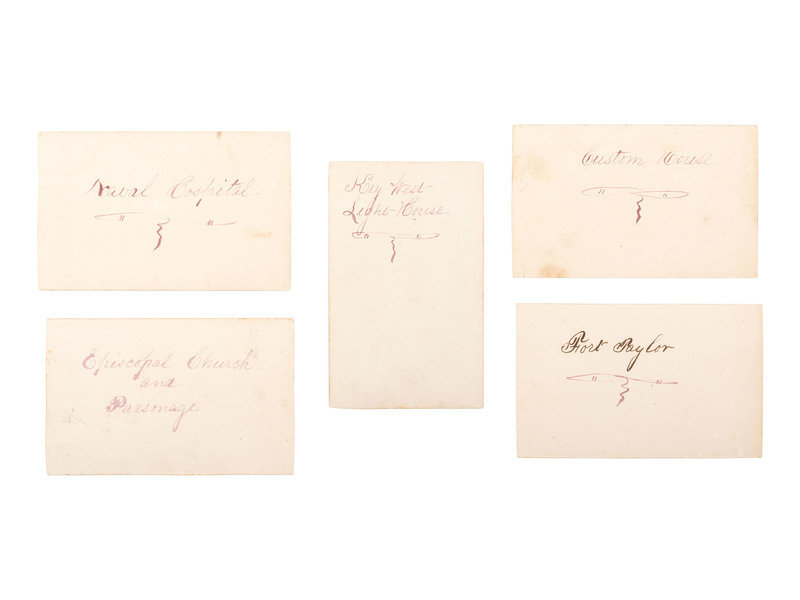 Naval Hospital
Episcopal Church
and
Parsonage
Key West
Light House
Custom House
Fort Taylor